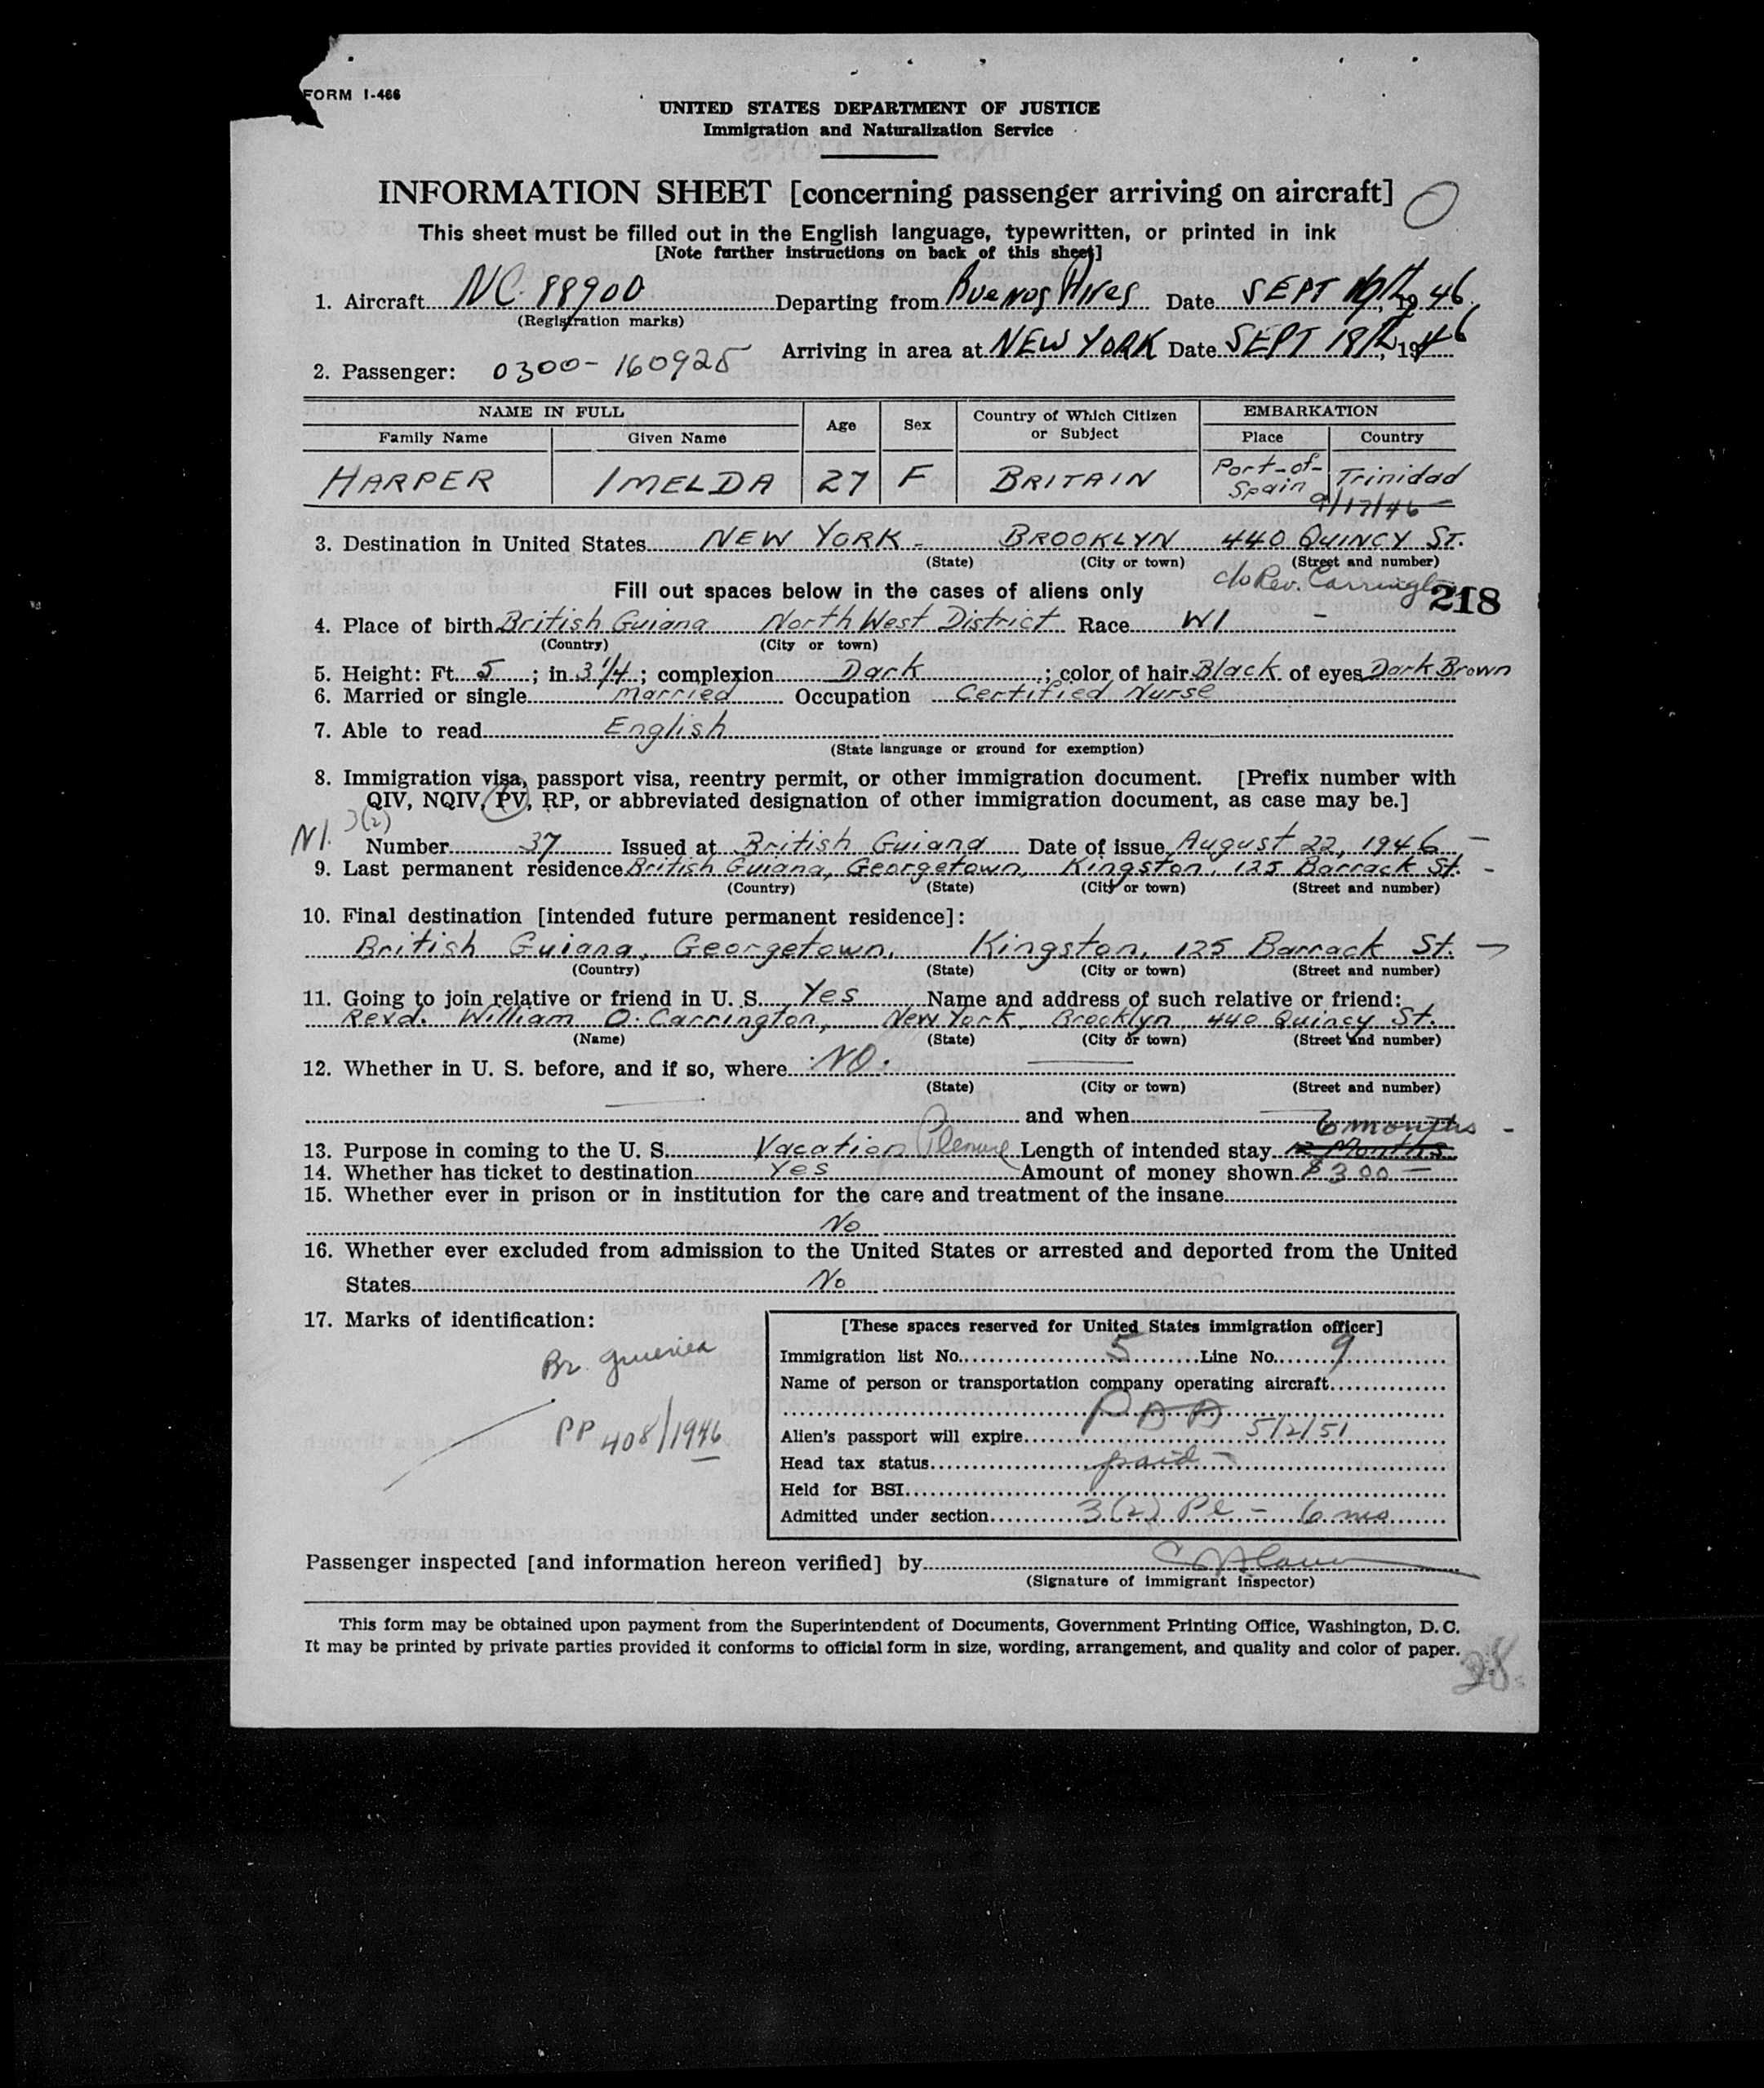 FORM I-466
UNITED STATES DEPARTMENT OF JUSTICE
Immigration and Naturalization Service
INFORMATION SHEET [concerning passenger arriving on aircraft] O
This sheet must be filled out in the English language, typewritten, or printed in ink
[Note further instructions on back of this sheet]
1. Aircraft NC. 88900 Departing from Buenos Aires Date SEPT 1946
(Registration marks)
Arriving in area at NEW YORK Date SEPT 18th, 1946
2. Passenger: 0300-160925
NAME IN FULL Age Sex Country of Which Citizen or Subject EMBARKATION
Family Name Given Name Place Country
HARPER IMELDA 27 F BRITAIN Port-of-Spain Trinidad
9/17/46
3. Destination in United States NEW YORK - BROOKLYN 440 QUINCY ST.
(State) (City or town) (Street and number)
Fill out spaces below in the cases of aliens only c/o Rev. Carrington 218
4. Place of birth British Guiana North West District Race WI -
(Country) (City or town)
5. Height: Ft. 5 ; in 3 1/4 ; complexion Dark ; color of hair Black of eyes Dark Brown
6. Married or single Married Occupation Certified Nurse
7. Able to read English
(State language or ground for exemption)
8. Immigration visa, passport visa, reentry permit, or other immigration document. [Prefix number with
QIV, NQIV, PV, RP, or abbreviated designation of other immigration document, as case may be.]
3(2)
NI. Number 37 Issued at British Guiana Date of issue August 22, 1946 -
9. Last permanent residence British Guiana, Georgetown, Kingston, 125 Barrack St. -
(Country) (State) (City or town) (Street and number)
10. Final destination [intended future permanent residence]:
British Guiana, Georgetown, Kingston, 125 Barrack St.
(Country) (State) (City or town) (Street and number)
11. Going to join relative or friend in U. S. Yes Name and address of such relative or friend:
Revd. William O. Carrington, New York, Brooklyn, 440 Quincy St.
(Name) (State) (City or town) (Street and number)
12. Whether in U. S. before, and if so, where NO.
(State) (City or town) (Street and number)
and when
6 months -
13. Purpose in coming to the U. S. Vacation Pleasure Length of intended stay 12 Months
14. Whether has ticket to destination Yes Amount of money shown $300 -
15. Whether ever in prison or in institution for the care and treatment of the insane
No
16. Whether ever excluded from admission to the United States or arrested and deported from the United
States No
17. Marks of identification:
Br.
PP 408/1946
[These spaces reserved for United States immigration officer]
Immigration list No. 5 Line No. 9
Name of person or transportation company operating aircraft
PAA
Alien's passport will expire 5/2/51
Head tax status paid -
Held for BSI
Admitted under section 3(2) Pl - 6 mo
Passenger inspected [and information hereon verified] by
(Signature of immigrant inspector)
This form may be obtained upon payment from the Superintendent of Documents, Government Printing Office, Washington, D. C.
It may be printed by private parties provided it conforms to official form in size, wording, arrangement, and quality and color of paper.
28